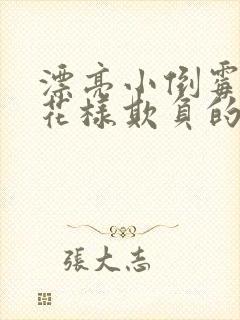 漂亮小倒霉
花樣欺負的
張大志